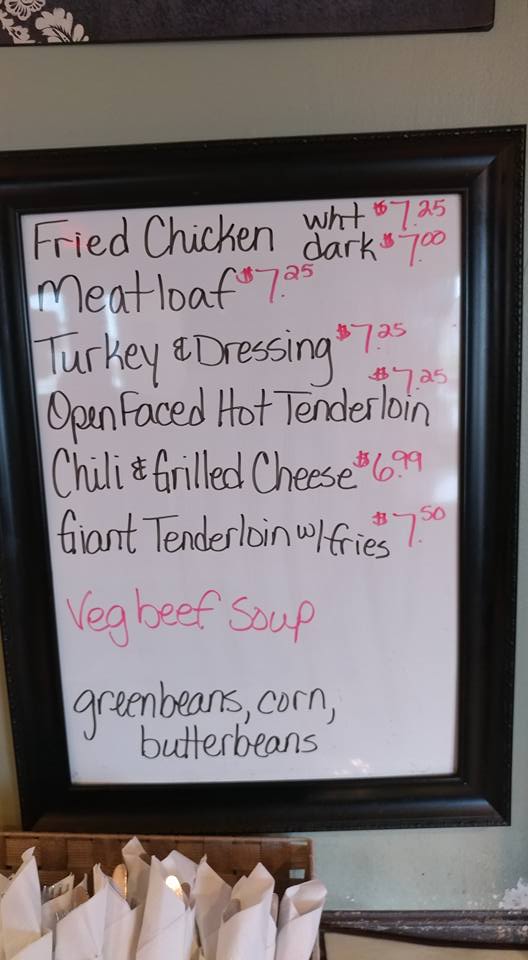 Fried Chicken wht $7.25
dark $7.00
Meatloaf $7.25
Turkey & Dressing $7.25
$7.25
Open Faced Hot Tenderloin
Chili & Grilled Cheese $6.99
Giant Tenderloin w/fries $7.50
Veg beef Soup
greenbeans, corn,
butterbeans